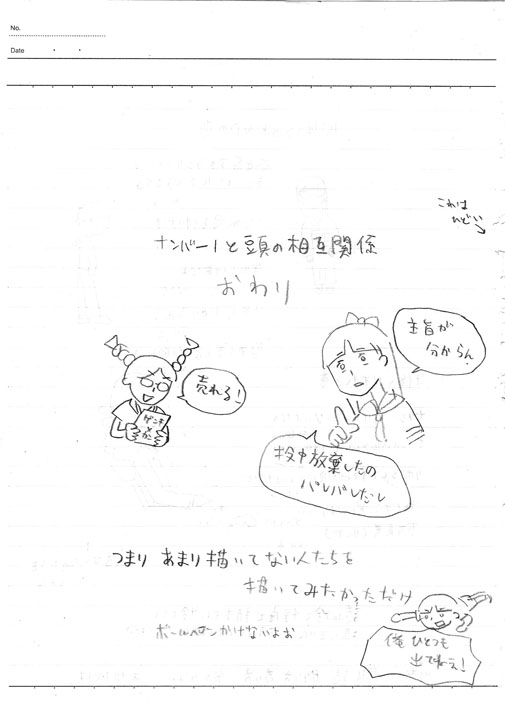 No.
Date
これは
ひどい
ナンバー1と頭の相互関係
おわり
主旨が
分からん
売れる!
ゲンキ
メ
が
途中放棄したの
バレバレだし
つまり あまり描いてない人たちを
描いてみたかっただけ
ボールペンかけないよお
俺ひとつも
出てねえ!